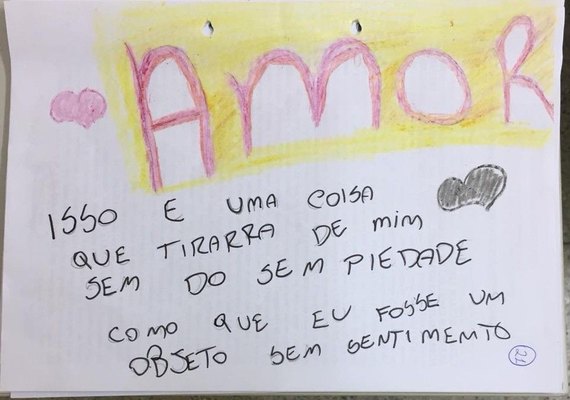 AMOR
ISSO E UMA COISA
QUE TIRARRA DE mim
SEM DO SEM PIEDADE
COMO QUE EU FOSSE UM
OBJETO SEM SENTIMEMTO